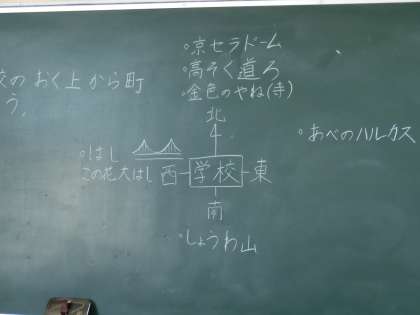 校のおく上から町
う。
○京セラドーム
○高そく道ろ
○金色のやね(寺)
北
4
○あべのハルカス
○はし
この花大はし
西
学校
東
南
○しょうわ山